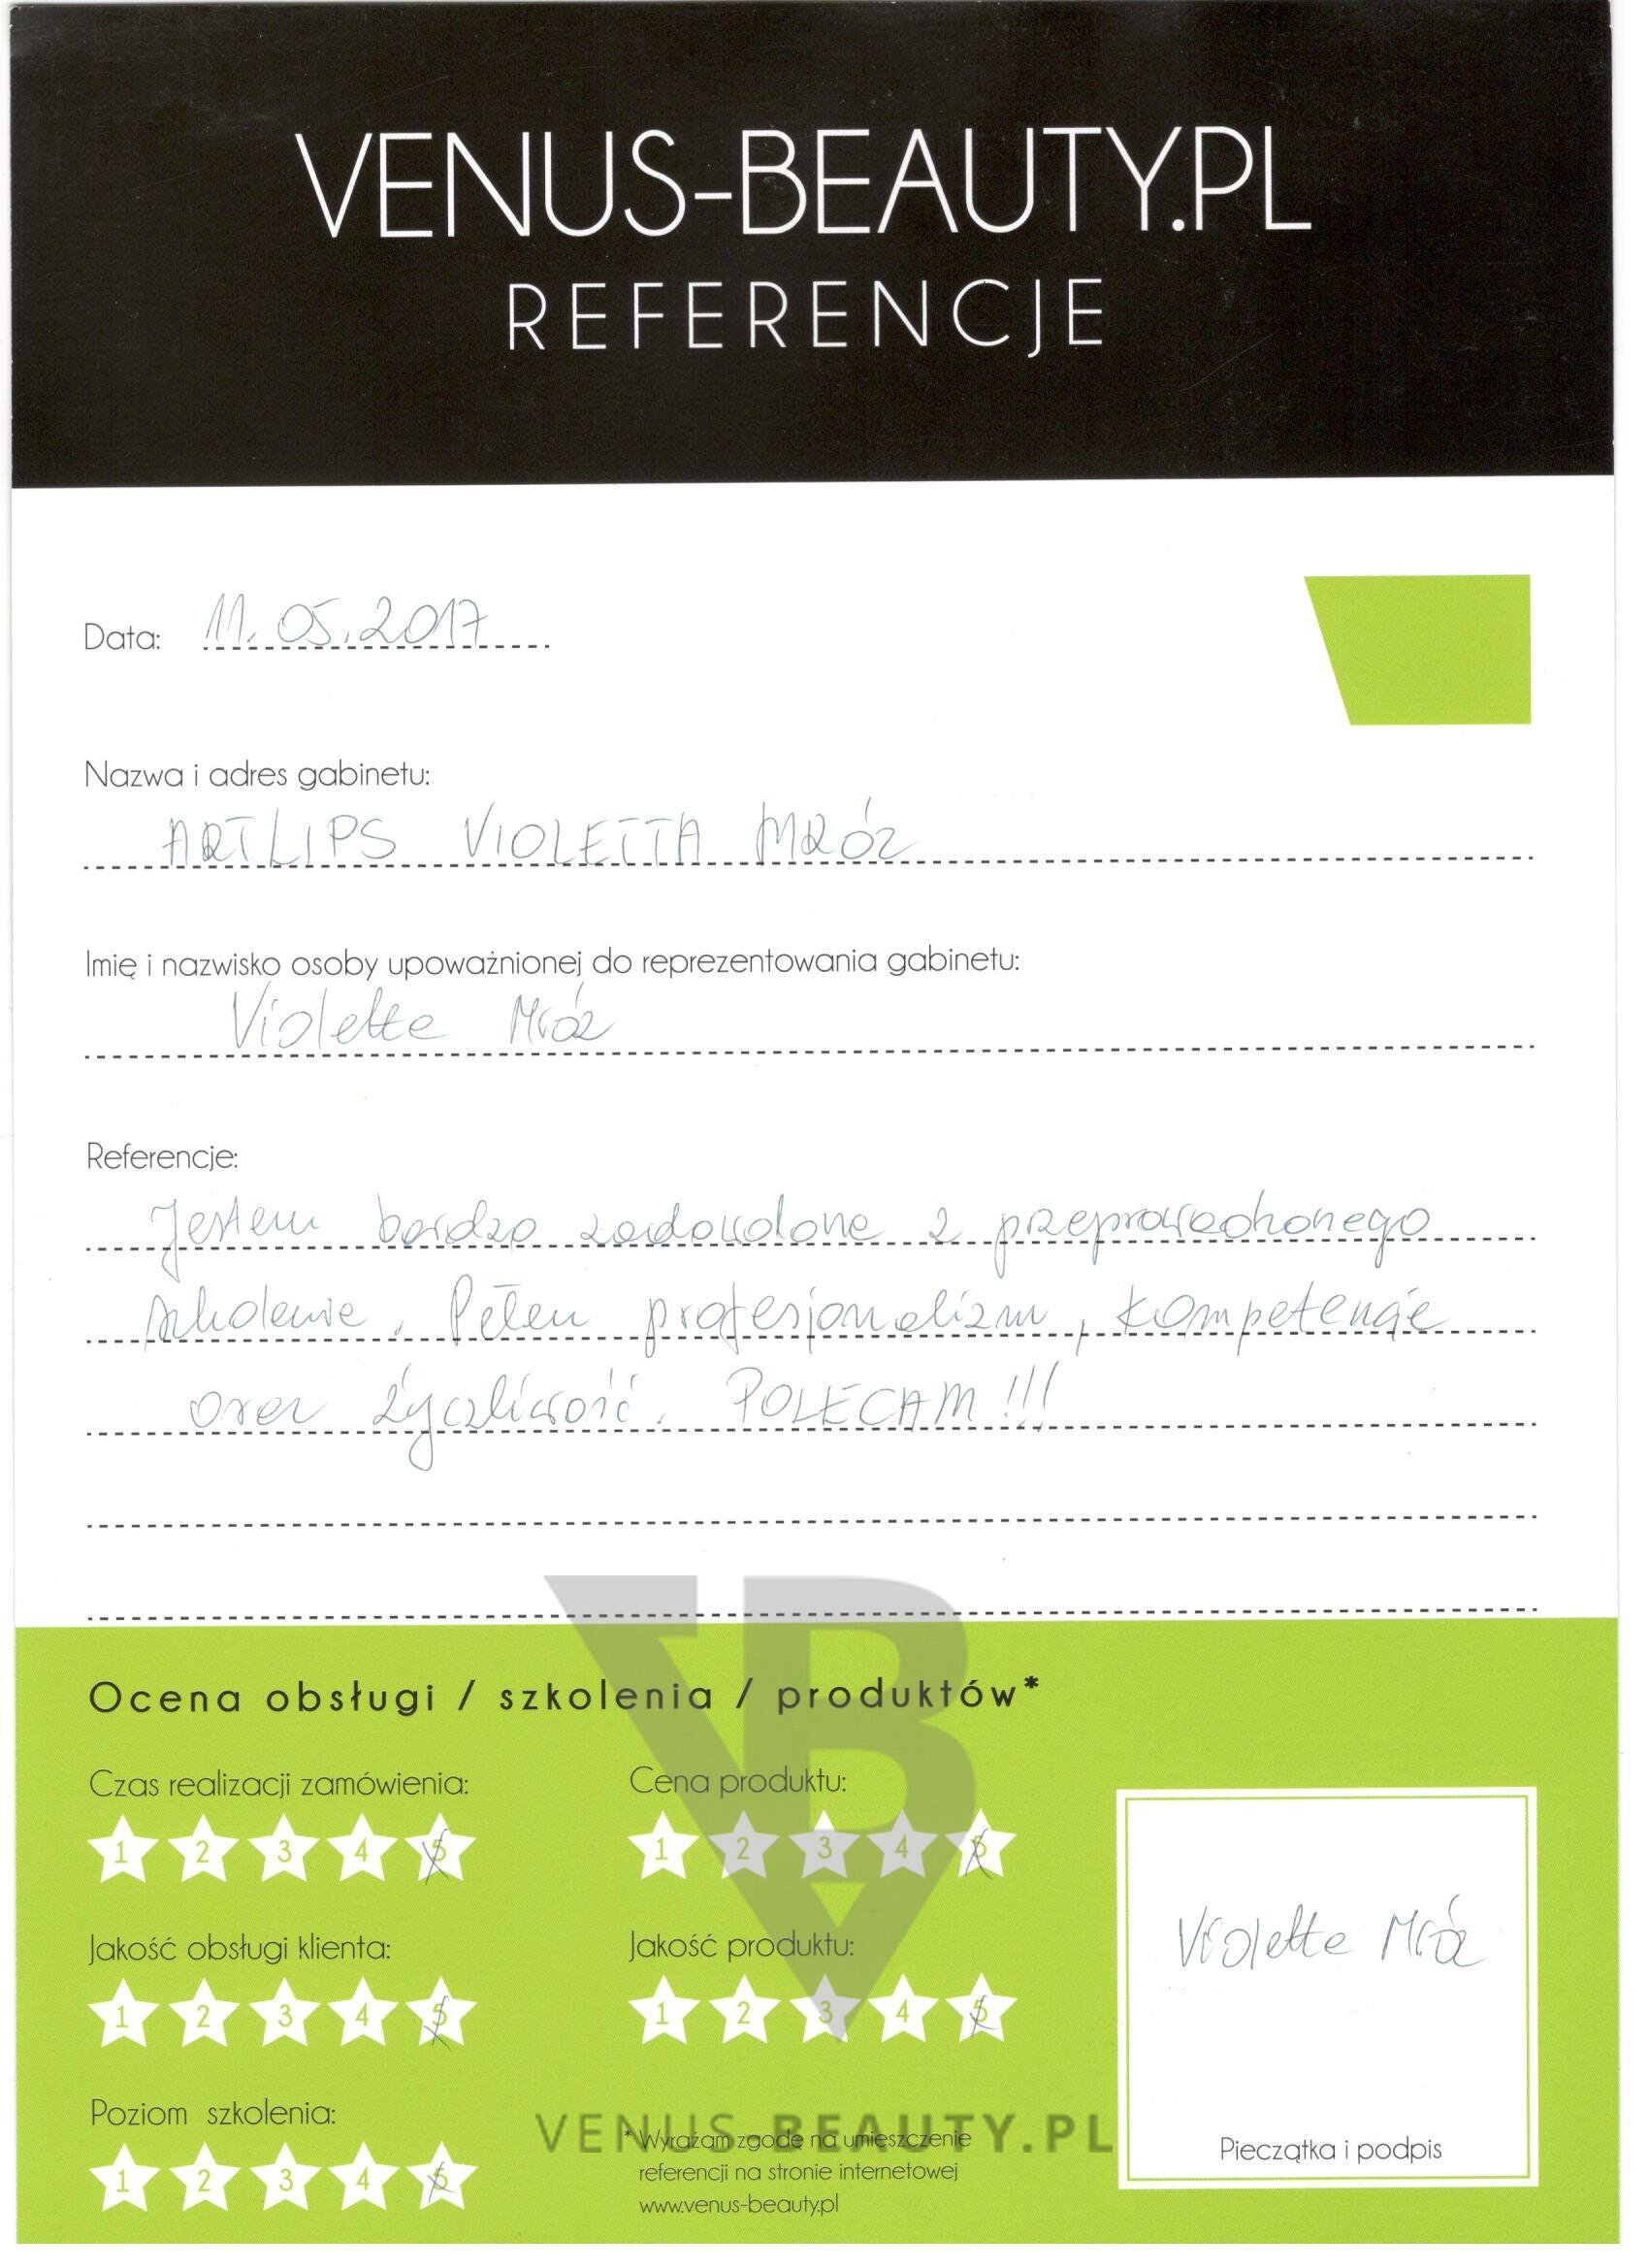 VENUS-BEAUTY.PL
REFERENCJE
Data: 11.05.2017
Nazwa i adres gabinetu:
ARTLIPS VIOLETTA MRÓZ
Imię i nazwisko osoby upoważnionej do reprezentowania gabinetu:
Violetta Mróz
Referencje:
Jestem bardzo zadowolona z przeprowadzonego
szkolenia. Pełen profesjonalizm, kompetencje
oraz życzliwość. POLECAM!!!
Ocena obsługi / szkolenia / produktów*
Czas realizacji zamówienia:
1 2 3 4 5
Cena produktu:
1 2 3 4 5
Jakość obsługi klienta:
1 2 3 4 5
Jakość produktu:
1 2 3 4 5
Poziom szkolenia:
1 2 3 4 5
VENUS-BEAUTY.PL
* Wyrażam zgodę na umieszczenie
referencji na stronie internetowej
www.venus-beauty.pl
Violetta Mróz
Pieczątka i podpis
VB